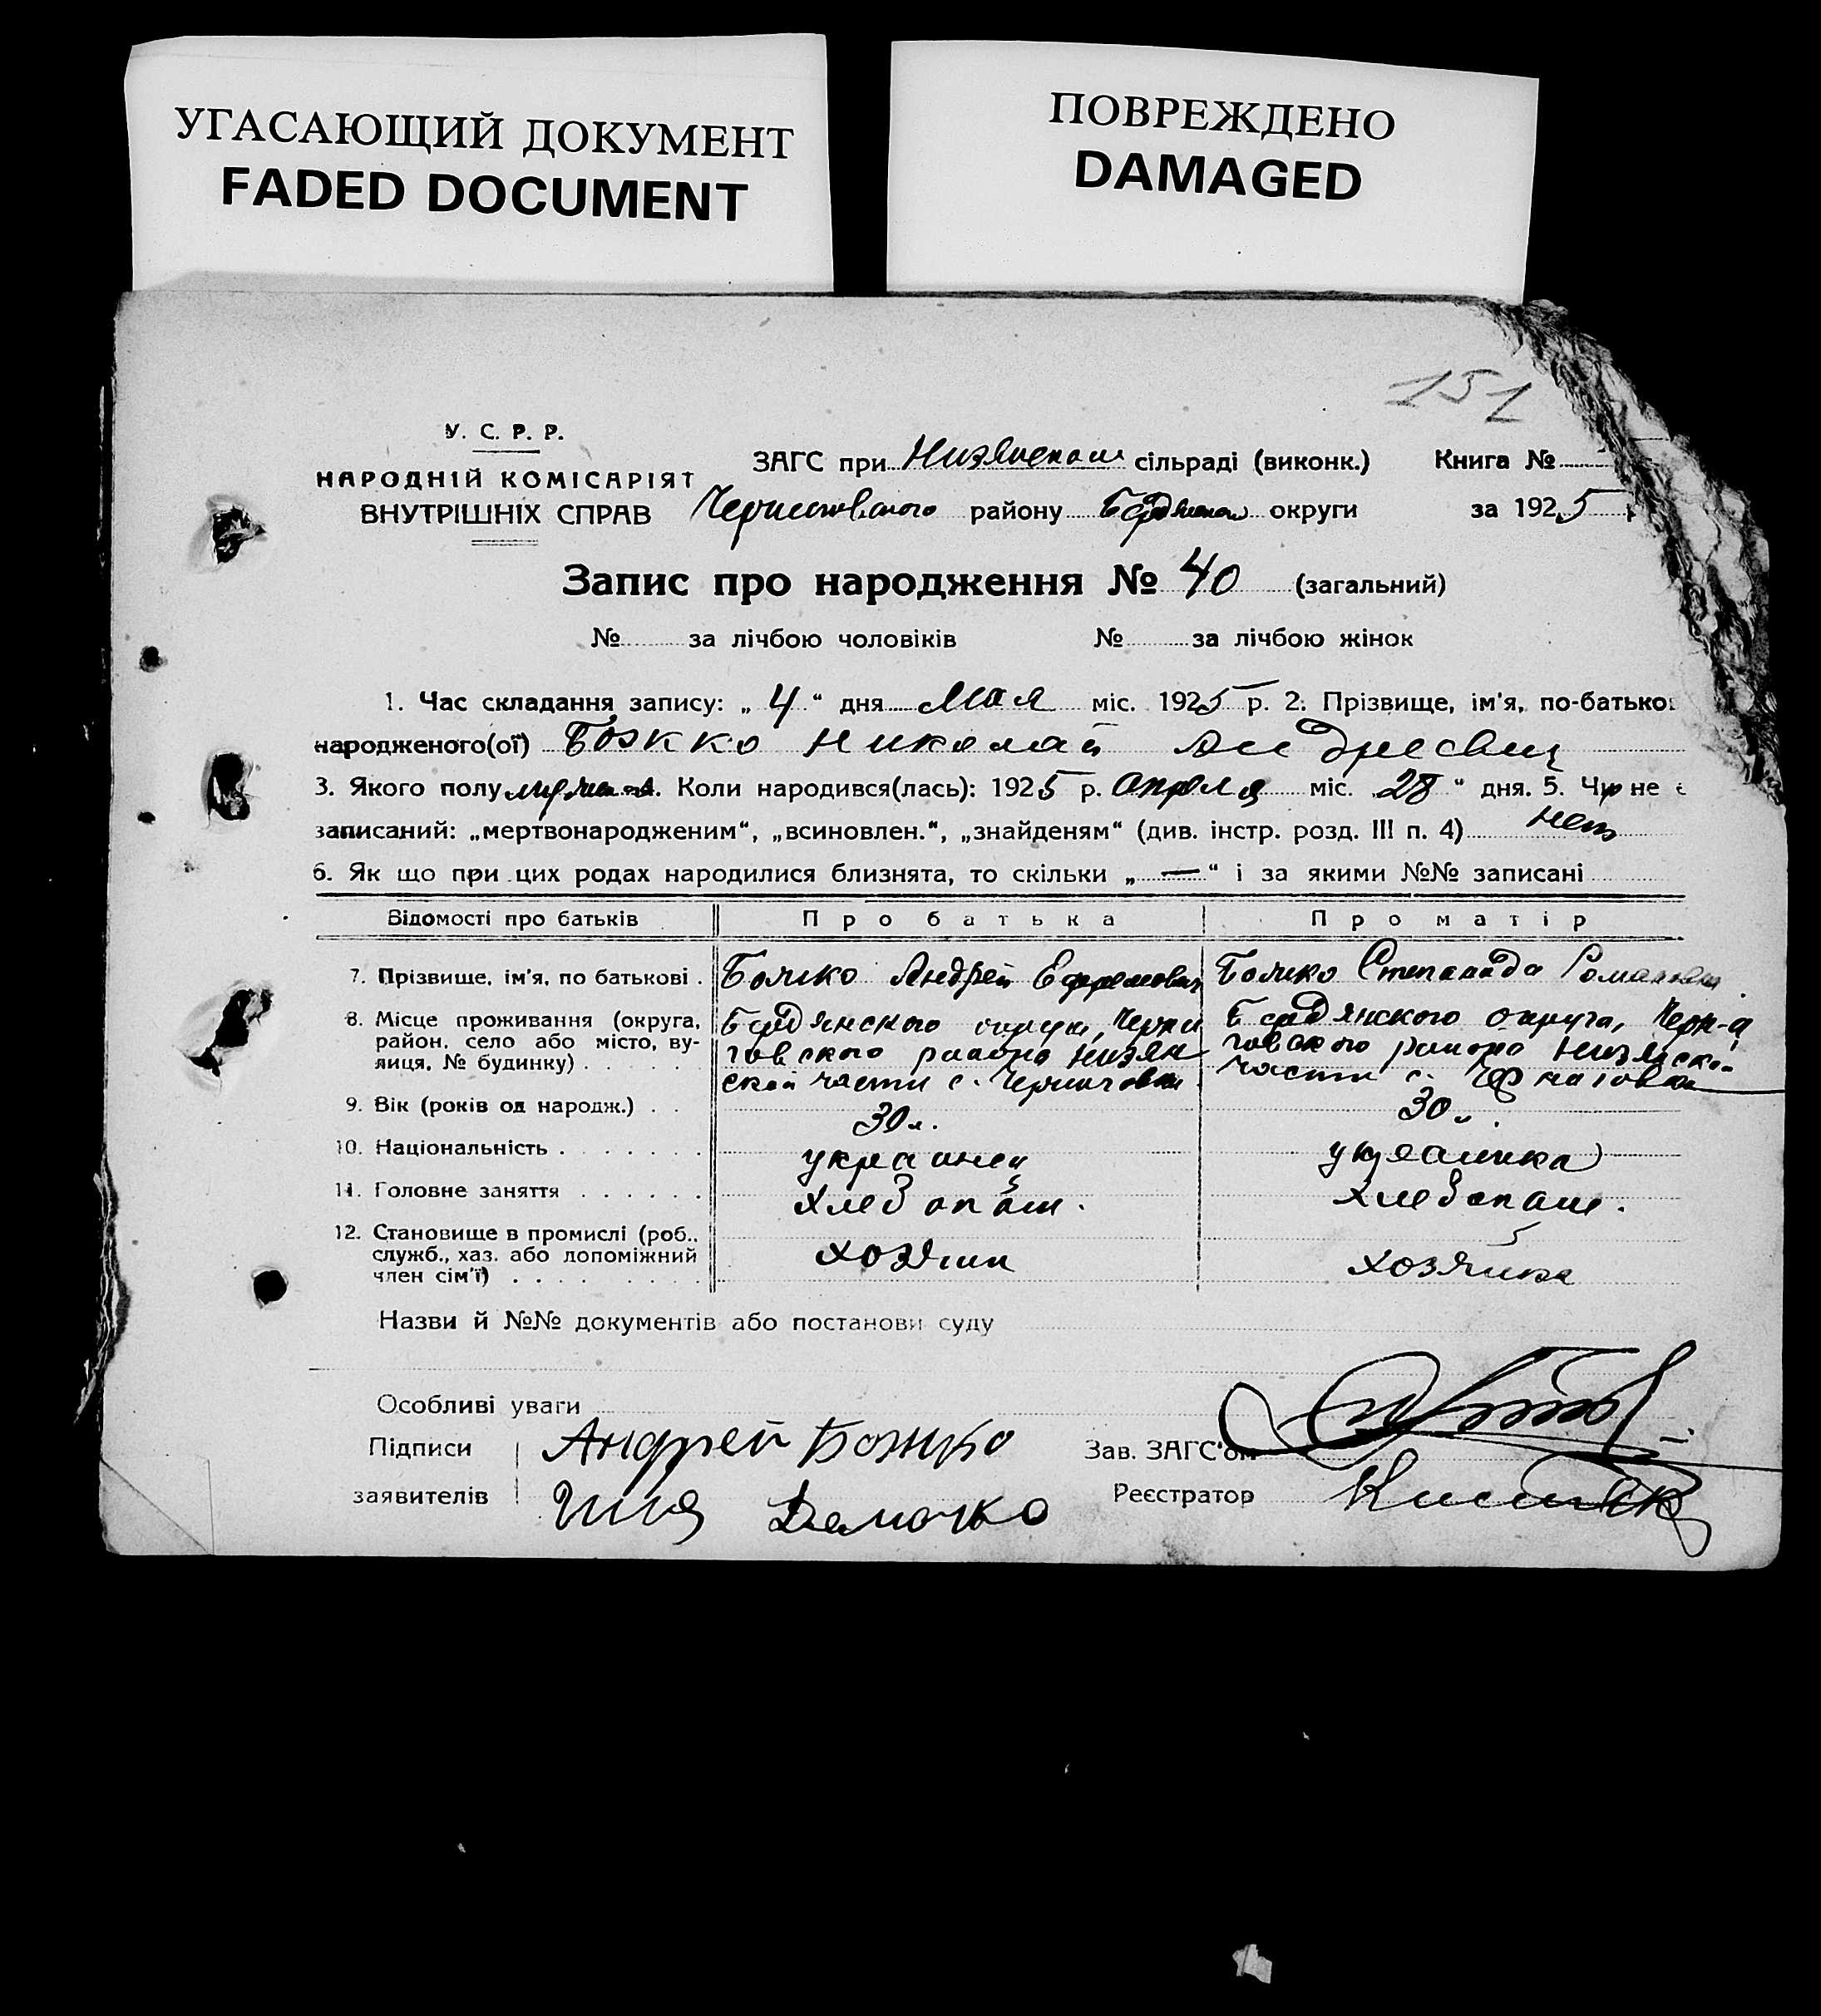 УГАСАЮЩИЙ ДОКУМЕНТ
FADED DOCUMENT
ПОВРЕЖДЕНО
DAMAGED
151
У. С. Р. Р.
НАРОДНІЙ КОМІСАРІЯТ
ВНУТРІШНІХ СПРАВ
ЗАГС при сільраді (виконк.) Книга №
району округи за 1925
Запис про народження № 40 (загальний)
№ за лічбою чоловіків № за лічбою жінок
1. Час складання запису: „ 4 “ дня Мая міс. 1925 р. 2. Прізвище, ім'я, по-батько
народженого(ої) Божко Николай Андреевич
3. Якого полу Коли народився(лась): 1925 р. Апреля міс. 28 “ дня. 5. Чи не є
записаний: „мертвонародженим“, „всиновлен.“, „знайденям“ (див. інстр. розд. III п. 4) нет
6. Як що при цих родах народилися близнята, то скільки „ — “ і за якими №№ записані
Відомості про батьків Про батька Про матір
7. Прізвище, ім'я, по батькові . Божко Андрей Ефремович Божко Степанида Романовна
8. Місце проживання (округа, Бердянского округа, Черни Бердянского округа, Чер
район, село або місто, ву- говского района Низян говского района
лиця, № будинку) . . . . . ской части с. Черниговки части с. Черниговка
9. Вік (років од народж.) . . 30 л. 30 л.
10. Національність . . . . . . . украинец украинка
11. Головне заняття . . . . . . хлебопаш. хлебопаш.
12. Становище в промислі (роб.,
служб., хаз. або допоміжний хозяин хозяйка
член сім'ї) . . . . . . . .
Назви й №№ документів або постанови суду
Особливі уваги
Підписи Андрей Божко Зав. ЗАГС'ом
заявителів Реєстратор